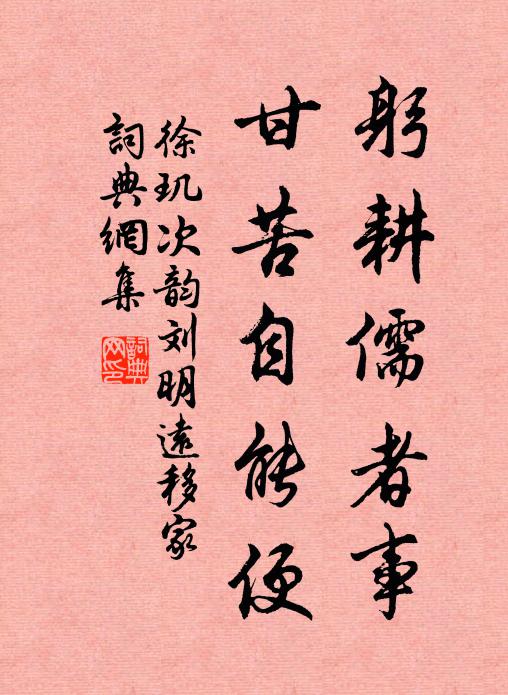 躬耕儒者事
甘苦自能便
徐玑次韵刘明遠移家
詞典網集
詞典網印